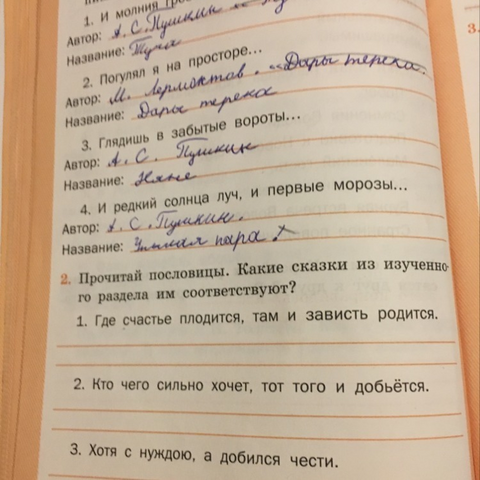 1. И молния гроз
Автор: А. С. Пушкин
Название: Туча
2. Погулял я на просторе...
Автор: М. Лермонтов. «Дары терека.
Название: Дары терека
3. Глядишь в забытые вороты...
Автор: А. С. Пушкин
Название: Няне
4. И редкий солнца луч, и первые морозы...
Автор: А. С. Пушкин.
Название: пара
2. Прочитай пословицы. Какие сказки из изученно-
го раздела им соответствуют?
1. Где счастье плодится, там и зависть родится.
2. Кто чего сильно хочет, тот того и добьётся.
3. Хотя с нуждою, а добился чести.
3.